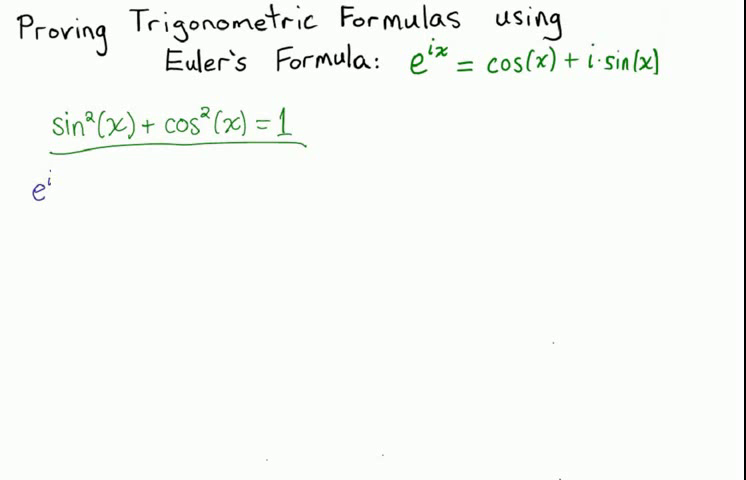 Proving Trigonometric Formulas using
Euler's Formula: e^{ix} = cos(x) + i·sin(x)
sin²(x) + cos²(x) = 1
e^i